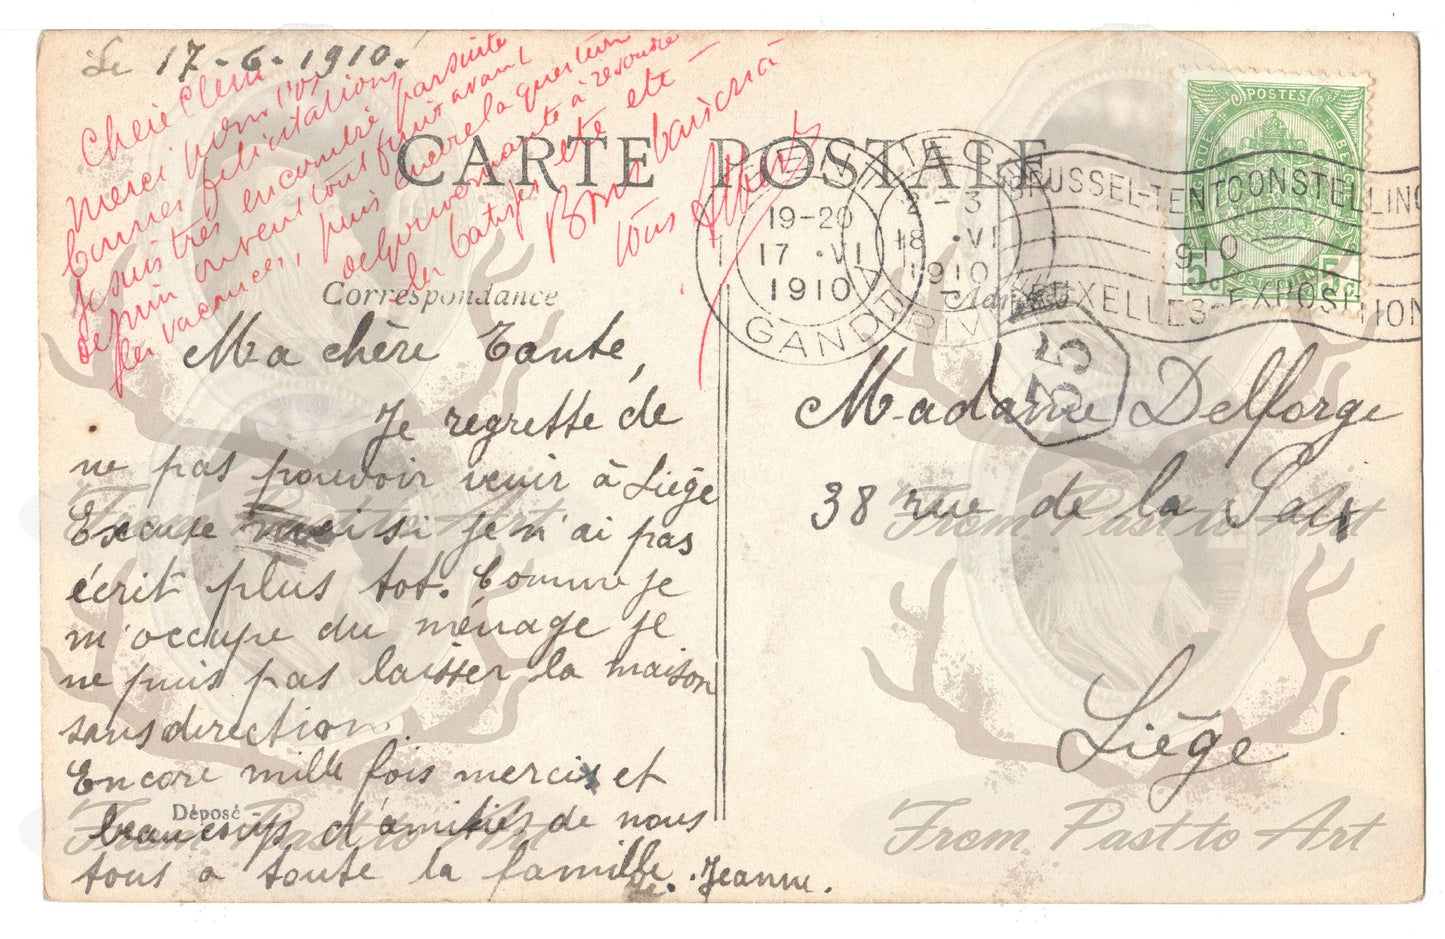 Le 17-6-1910.
Chère Clem
merci pour vos
bonnes félicitations
je suis très encombré par suite
de mon ouvent tout finir avant
les vacances, puis encore la question
du gouvernante à résoudre
les batisses etc etc —
Bons baisers à
tous Albert
CARTE POSTALE
Correspondance
Ma chère Tante,
Je regrette de
ne pas pouvoir venir à Liège
Excuse moi si je n'ai pas
écrit plus tot. Comme je
m'occupe du ménage je
ne puis pas laisser la maison
sans direction.
Encore mille fois merci et
beaucoups d'amitiés de nous
tous a toute la famille. Jeanne.
Déposé
19-20
17 · VI
1910
GAND
2-3
18 · VI
1910
BRUSSEL-TENTOONSTELLING
1910
BRUXELLES-EXPOSITION
POSTES
5c 5c
35
Madame Delforge
38 rue de la Paix
Liège
From Past to Art
From Past to Art
From Past to Art
From Past to Art